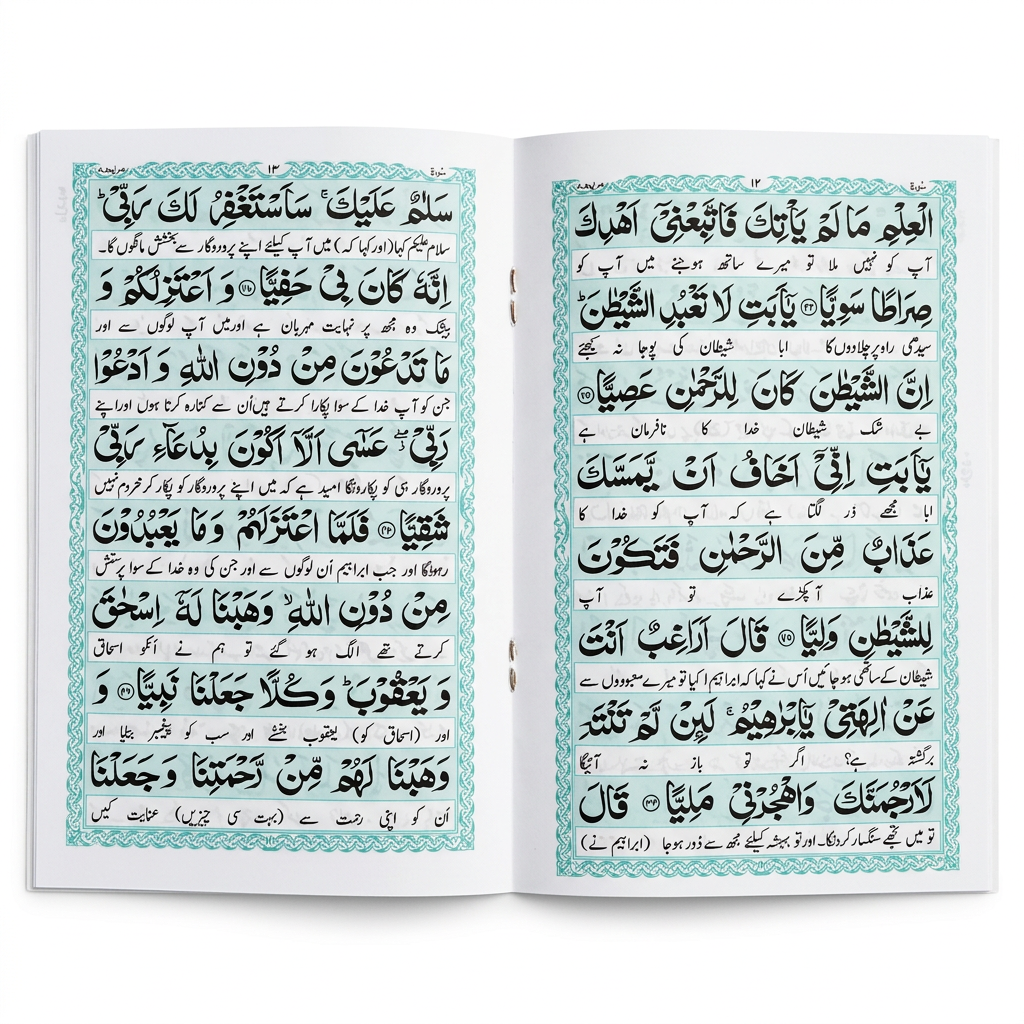 ۱۲
سورۃ
الْعِلْمِ مَا لَمْ یَاْتِكَ فَاتَّبِعْنِیْۤ اَهْدِكَ
آپ کو نہیں ملا تو میرے ساتھ ہوجئے میں آپ کو
صِرَاطًا سَوِیًّا یٰۤاَبَتِ لَا تَعْبُدِ الشَّیْطٰنَ ؕ
سیدھی راہ پر چلادوں گا ابا شیطان کی پوجا نہ کیجئے
اِنَّ الشَّیْطٰنَ كَانَ لِلرَّحْمٰنِ عَصِیًّا
بے شک شیطان خدا کا نافرمان ہے
یٰۤاَبَتِ اِنِّیْۤ اَخَافُ اَنْ یَّمَسَّكَ
ابا مجھے ڈر لگتا ہے کہ آپ کو خدا کا
عَذَابٌ مِّنَ الرَّحْمٰنِ فَتَكُوْنَ
عذاب آ پکڑے تو آپ
لِلشَّیْطٰنِ وَلِیًّا ۷۵ قَالَ اَرَاغِبٌ اَنْتَ
شیطان کے ساتھی ہو جائیں اُس نے کہا کہ ابراہیم! کیا تو میرے معبودوں سے
عَنْ اٰلِهَتِیْ یٰۤاِبْرٰهِیْمُ ۚ لَىِٕنْ لَّمْ تَنْتَهِ
برگشتہ ہے؟ اگر تو باز نہ آئیگا
لَاَرْجُمَنَّكَ وَاهْجُرْنِیْ مَلِیًّا قَالَ
تو میں تجھے سنگسار کردونگا۔ اور تو ہمیشہ کیلئے مجھ سے دور ہو جا (ابراہیم نے)
۱۳
سورۃ
سَلٰمٌ عَلَیْكَ ۚ سَاَسْتَغْفِرُ لَكَ رَبِّیْ ؕ
سلام علیکم کہا (اور کہا کہ) میں آپ کیلئے اپنے پروردگار سے بخشش مانگوں گا۔
اِنَّهٗ كَانَ بِیْ حَفِیًّا وَ اَعْتَزِلُكُمْ وَ
بیشک وہ مجھ پر نہایت مہربان ہے اور میں آپ لوگوں سے اور
مَا تَدْعُوْنَ مِنْ دُوْنِ اللّٰهِ وَ اَدْعُوْا
جن کو آپ خدا کے سوا پکارا کرتے ہیں اُن سے کنارہ کرتا ہوں اور اپنے
رَبِّیْ ۖ عَسٰۤی اَلَّاۤ اَكُوْنَ بِدُعَآءِ رَبِّیْ
پروردگار ہی کو پکارونگا امید ہے کہ میں اپنے پروردگار کو پکار کر محروم نہیں
شَقِیًّا فَلَمَّا اعْتَزَلَهُمْ وَ مَا یَعْبُدُوْنَ
رہونگا اور جب ابراہیم اُن لوگوں سے اور جن کی وہ خدا کے سوا پرستش
مِنْ دُوْنِ اللّٰهِ ۙ وَهَبْنَا لَهٗۤ اِسْحٰقَ
کرتے تھے الگ ہو گئے تو ہم نے اُنکو اسحاق
وَ یَعْقُوْبَ ؕ وَكُلًّا جَعَلْنَا نَبِیًّا وَ
اور (اسحاق کو) یعقوب بخشے اور سب کو پیغمبر بنایا اور
وَهَبْنَا لَهُمْ مِّنْ رَّحْمَتِنَا وَجَعَلْنَا
اُن کو اپنی رحمت سے (بہت سی چیزیں) عنایت کیں